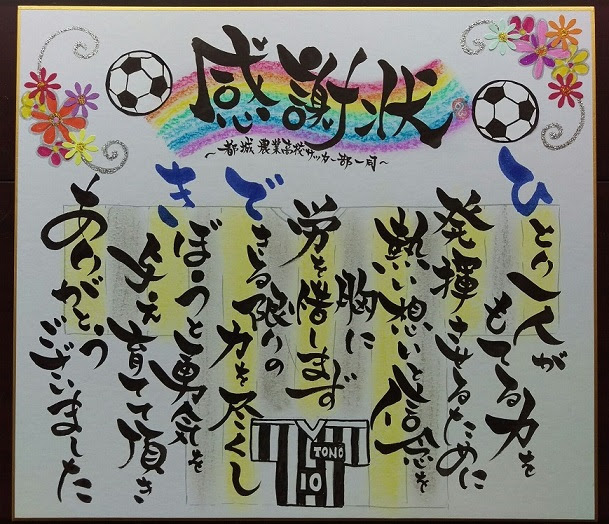 感謝状
～都城農業高校サッカー部一同～
ひとり一人が
もてる力を
発揮させるために
熱い想いと信念を
胸に
労を惜しまず
できる限りの
力を尽くし
きぼうと勇気を
与え育てて頂き
ありがとう
ございました
TONO
10